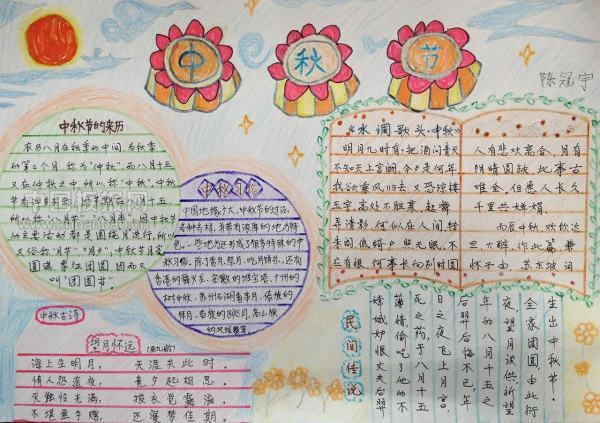 中秋节
陈冠宇
中秋节的来历
农历八月在秋季的中间,为秋季
的第二个月称为“仲秋”,而八月十五
又在仲秋之中,所以称“中秋”。中秋
所以称“八月节”、“八月半”
又俗称“月节”、“月夕”;中秋节月亮
圆满,象征团圆,因而又
叫“团圆节”。
中秋习俗
中国地缘广大,中秋节的过法,
各种各样,并带有浓厚的地方特
色。一些地方还形成了很多特殊的中
秋习俗。除了赏月、祭月、吃月饼外,还有
香港的舞火龙、安徽的堆宝塔、广州的
树中秋、
中秋古诗
望月怀远
海上生明月,天涯共此时。
情人怨遥夜,竟夕起相思。
灭烛怜光满,披衣觉露滋。
不堪盈手赠,还寝梦佳期。
《水调歌头·中秋》
明月几时有,把酒问青天
不知天上宫阙,今夕是何年
我欲乘风归去,又恐琼楼
玉宇,高处不胜寒,起舞
弄清影,何似在人间,转
朱阁,低绮户,照无眠,不
应有恨,何事长向别时圆
人有悲欢离合,月有
阴晴圆缺,此事古
难全,但愿人长久
千里共婵娟。
丙辰中秋,欢饮达
旦,大醉,作此篇,兼
怀子由。苏东坡词
民间传说
嫦娥妒恨丈夫后羿
薄情,偷吃了他的不
死之药,于八月十五
日之夜飞上月宫,
后羿后悔不已,年
年的八月十五之
夜,望月设供,祈望
全家团圆,由此衍
生出中秋节。